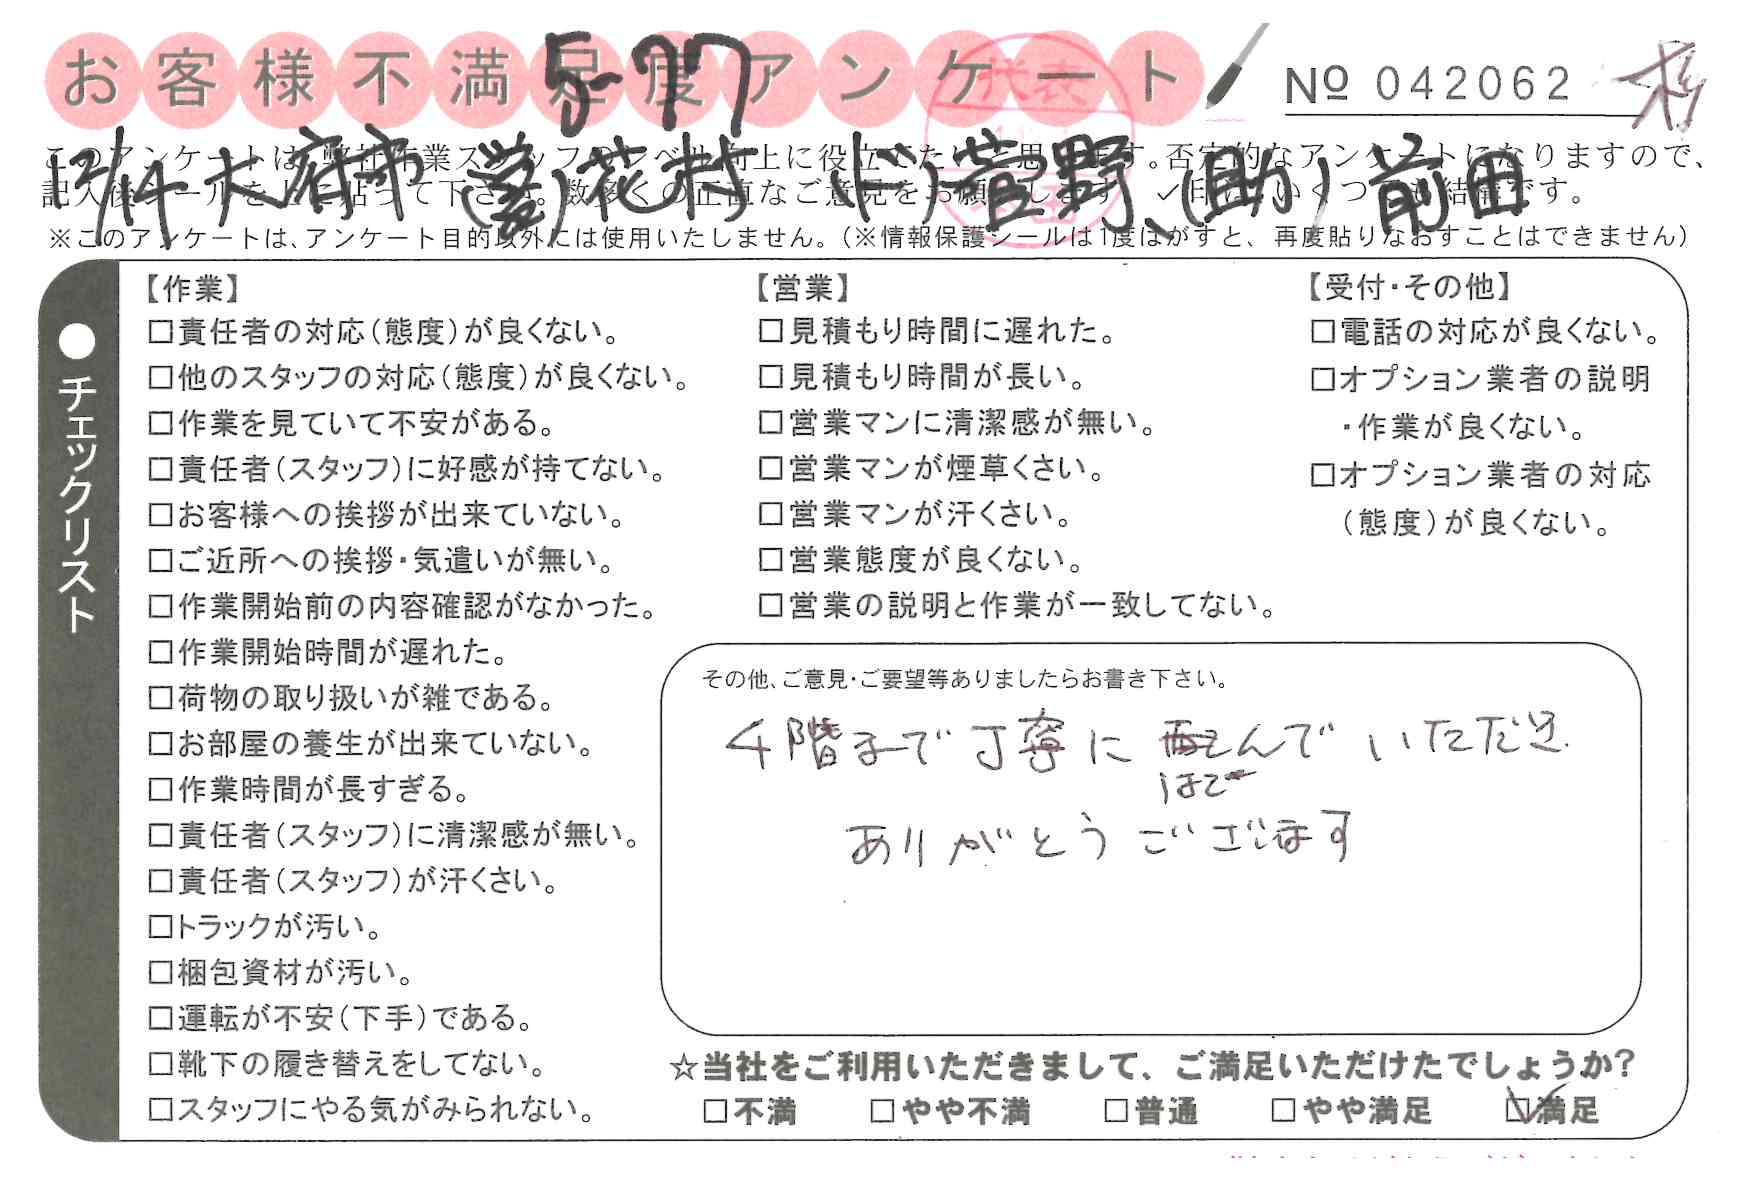 お客様不満足度アンケート
5-77
Nº 042062
このアンケートは、弊社作業スタッフのレベル向上に役立てたいと思います。否定的なアンケートになりますので、
記入後シールを上に貼って下さい。数多くの正直なご意見をお願いします。✓印はいくつでも結構です。
12/14 大府市 (営)花村 (ド)菅野、(助)前田
※このアンケートは、アンケート目的以外には使用いたしません。(※情報保護シールは1度はがすと、再度貼りなおすことはできません)
●チェックリスト
【作業】
□責任者の対応(態度)が良くない。
□他のスタッフの対応(態度)が良くない。
□作業を見ていて不安がある。
□責任者(スタッフ)に好感が持てない。
□お客様への挨拶が出来ていない。
□ご近所への挨拶・気遣いが無い。
□作業開始前の内容確認がなかった。
□作業開始時間が遅れた。
□荷物の取り扱いが雑である。
□お部屋の養生が出来ていない。
□作業時間が長すぎる。
□責任者(スタッフ)に清潔感が無い。
□責任者(スタッフ)が汗くさい。
□トラックが汚い。
□梱包資材が汚い。
□運転が不安(下手)である。
□靴下の履き替えをしてない。
□スタッフにやる気がみられない。
【営業】
□見積もり時間に遅れた。
□見積もり時間が長い。
□営業マンに清潔感が無い。
□営業マンが煙草くさい。
□営業マンが汗くさい。
□営業態度が良くない。
□営業の説明と作業が一致してない。
【受付・その他】
□電話の対応が良くない。
□オプション業者の説明
・作業が良くない。
□オプション業者の対応
(態度)が良くない。
その他、ご意見・ご要望等ありましたらお書き下さい。
4階まで丁寧に んでいただき
はこ
ありがとうございます
☆当社をご利用いただきまして、ご満足いただけたでしょうか?
□不満 □やや不満 □普通 □やや満足 ☑満足